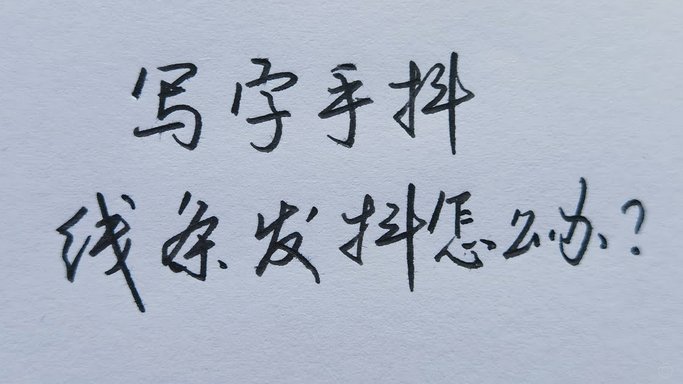 写字手抖
线条发抖怎么办？